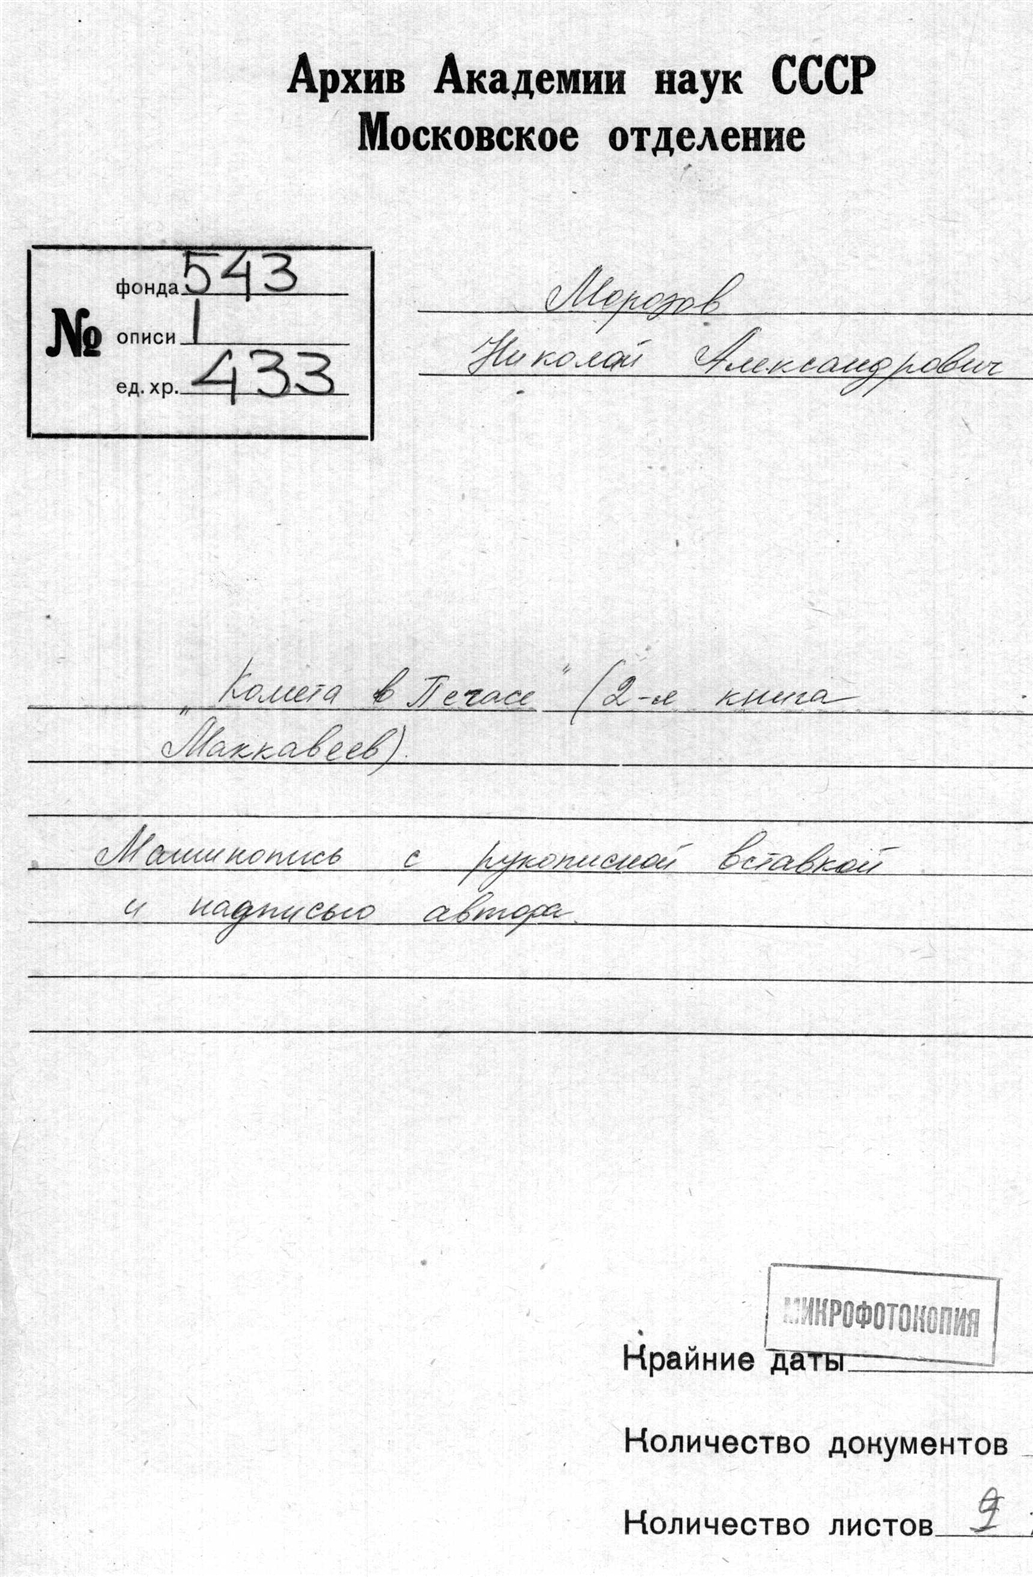 Архив Академии наук СССР
Московское отделение
№
фонда 543
описи 1
ед. хр. 433
Морозов
Николай Александрович
"Комета в Пегасе" (2-я книга
Маккавеев).
Машинопись с рукописной вставкой
и надписью автора.
МИКРОФОТОКОПИЯ
Крайние даты
Количество документов
Количество листов 9